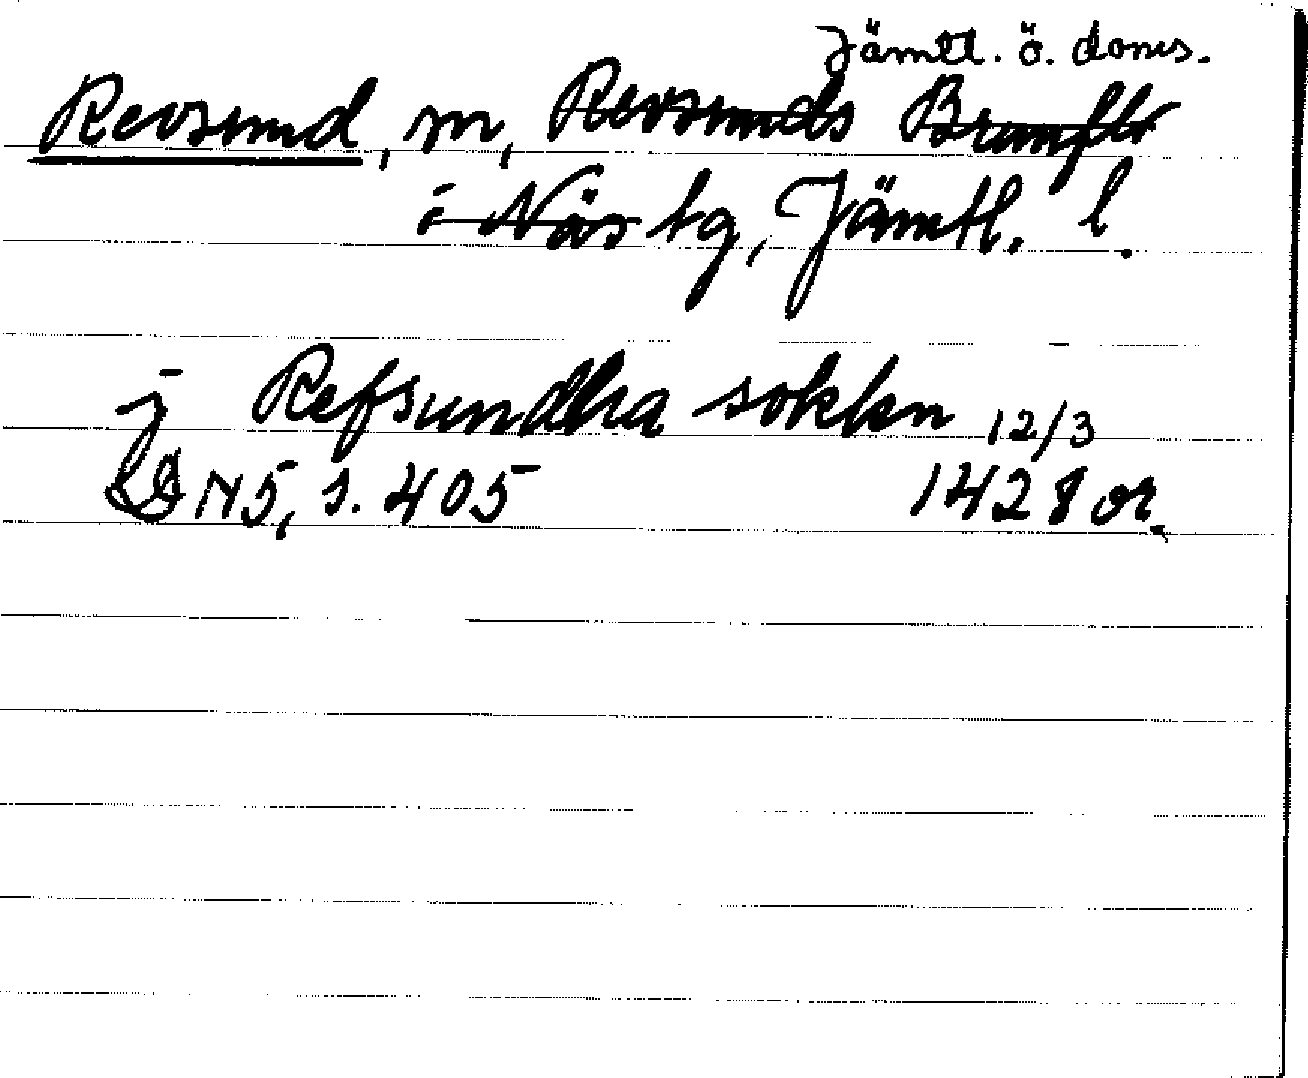 Jämtl. ö. doms.
Revsund, sn, Revsunds Brunflo
i Näs tg, Jämtl. l.
j Refsundha sokkn 12/3
SDN5, s. 405 1428 or.